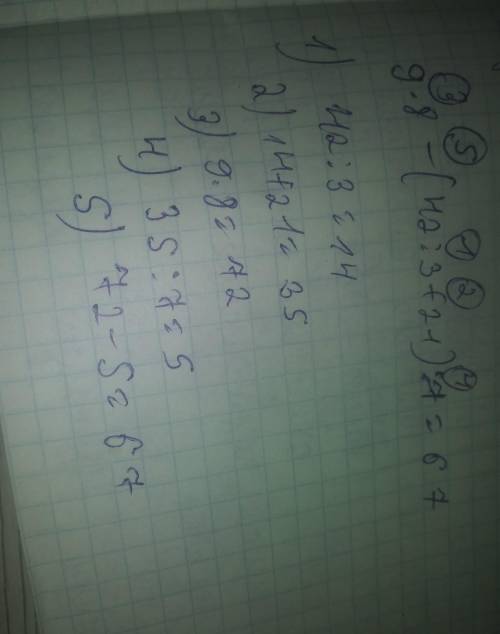 ③ ⑤ ① ② ④
9·8 - (42:3+21):7 = 67
1) 42:3 = 14
2) 14+21 = 35
3) 9·8 = 72
4) 35:7 = 5
5) 72-5 = 67